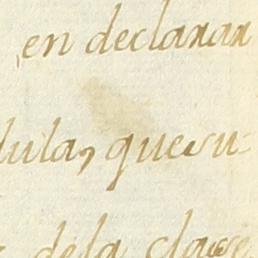 en declarar
dula, que su-
de la clase